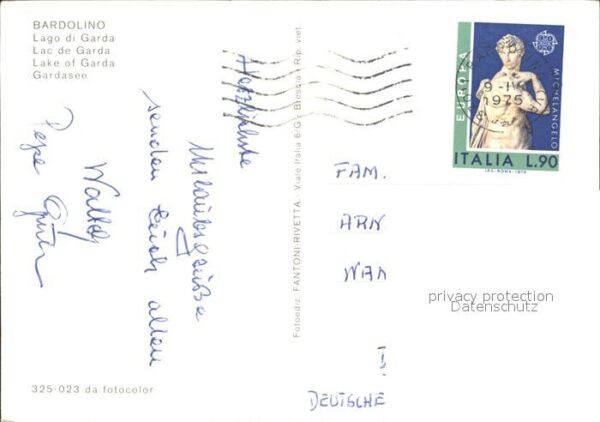 BARDOLINO
Lago di Garda
Lac de Garda
Lake of Garda
Gardasee
Herzlichste
Urlaubsgrüße
senden Euch allen
Fotoediz. FANTONI-RIVETTA. Viale Italia 6/G - Brescia - Rip. viet.
325-023 da fotocolor
EUROPA
MICHELANGELO
ITALIA L.90
I.P.S.-ROMA-1974
1975
FAM.
ARN
WAN
DEUTSCHE
privacy protection
Datenschutz